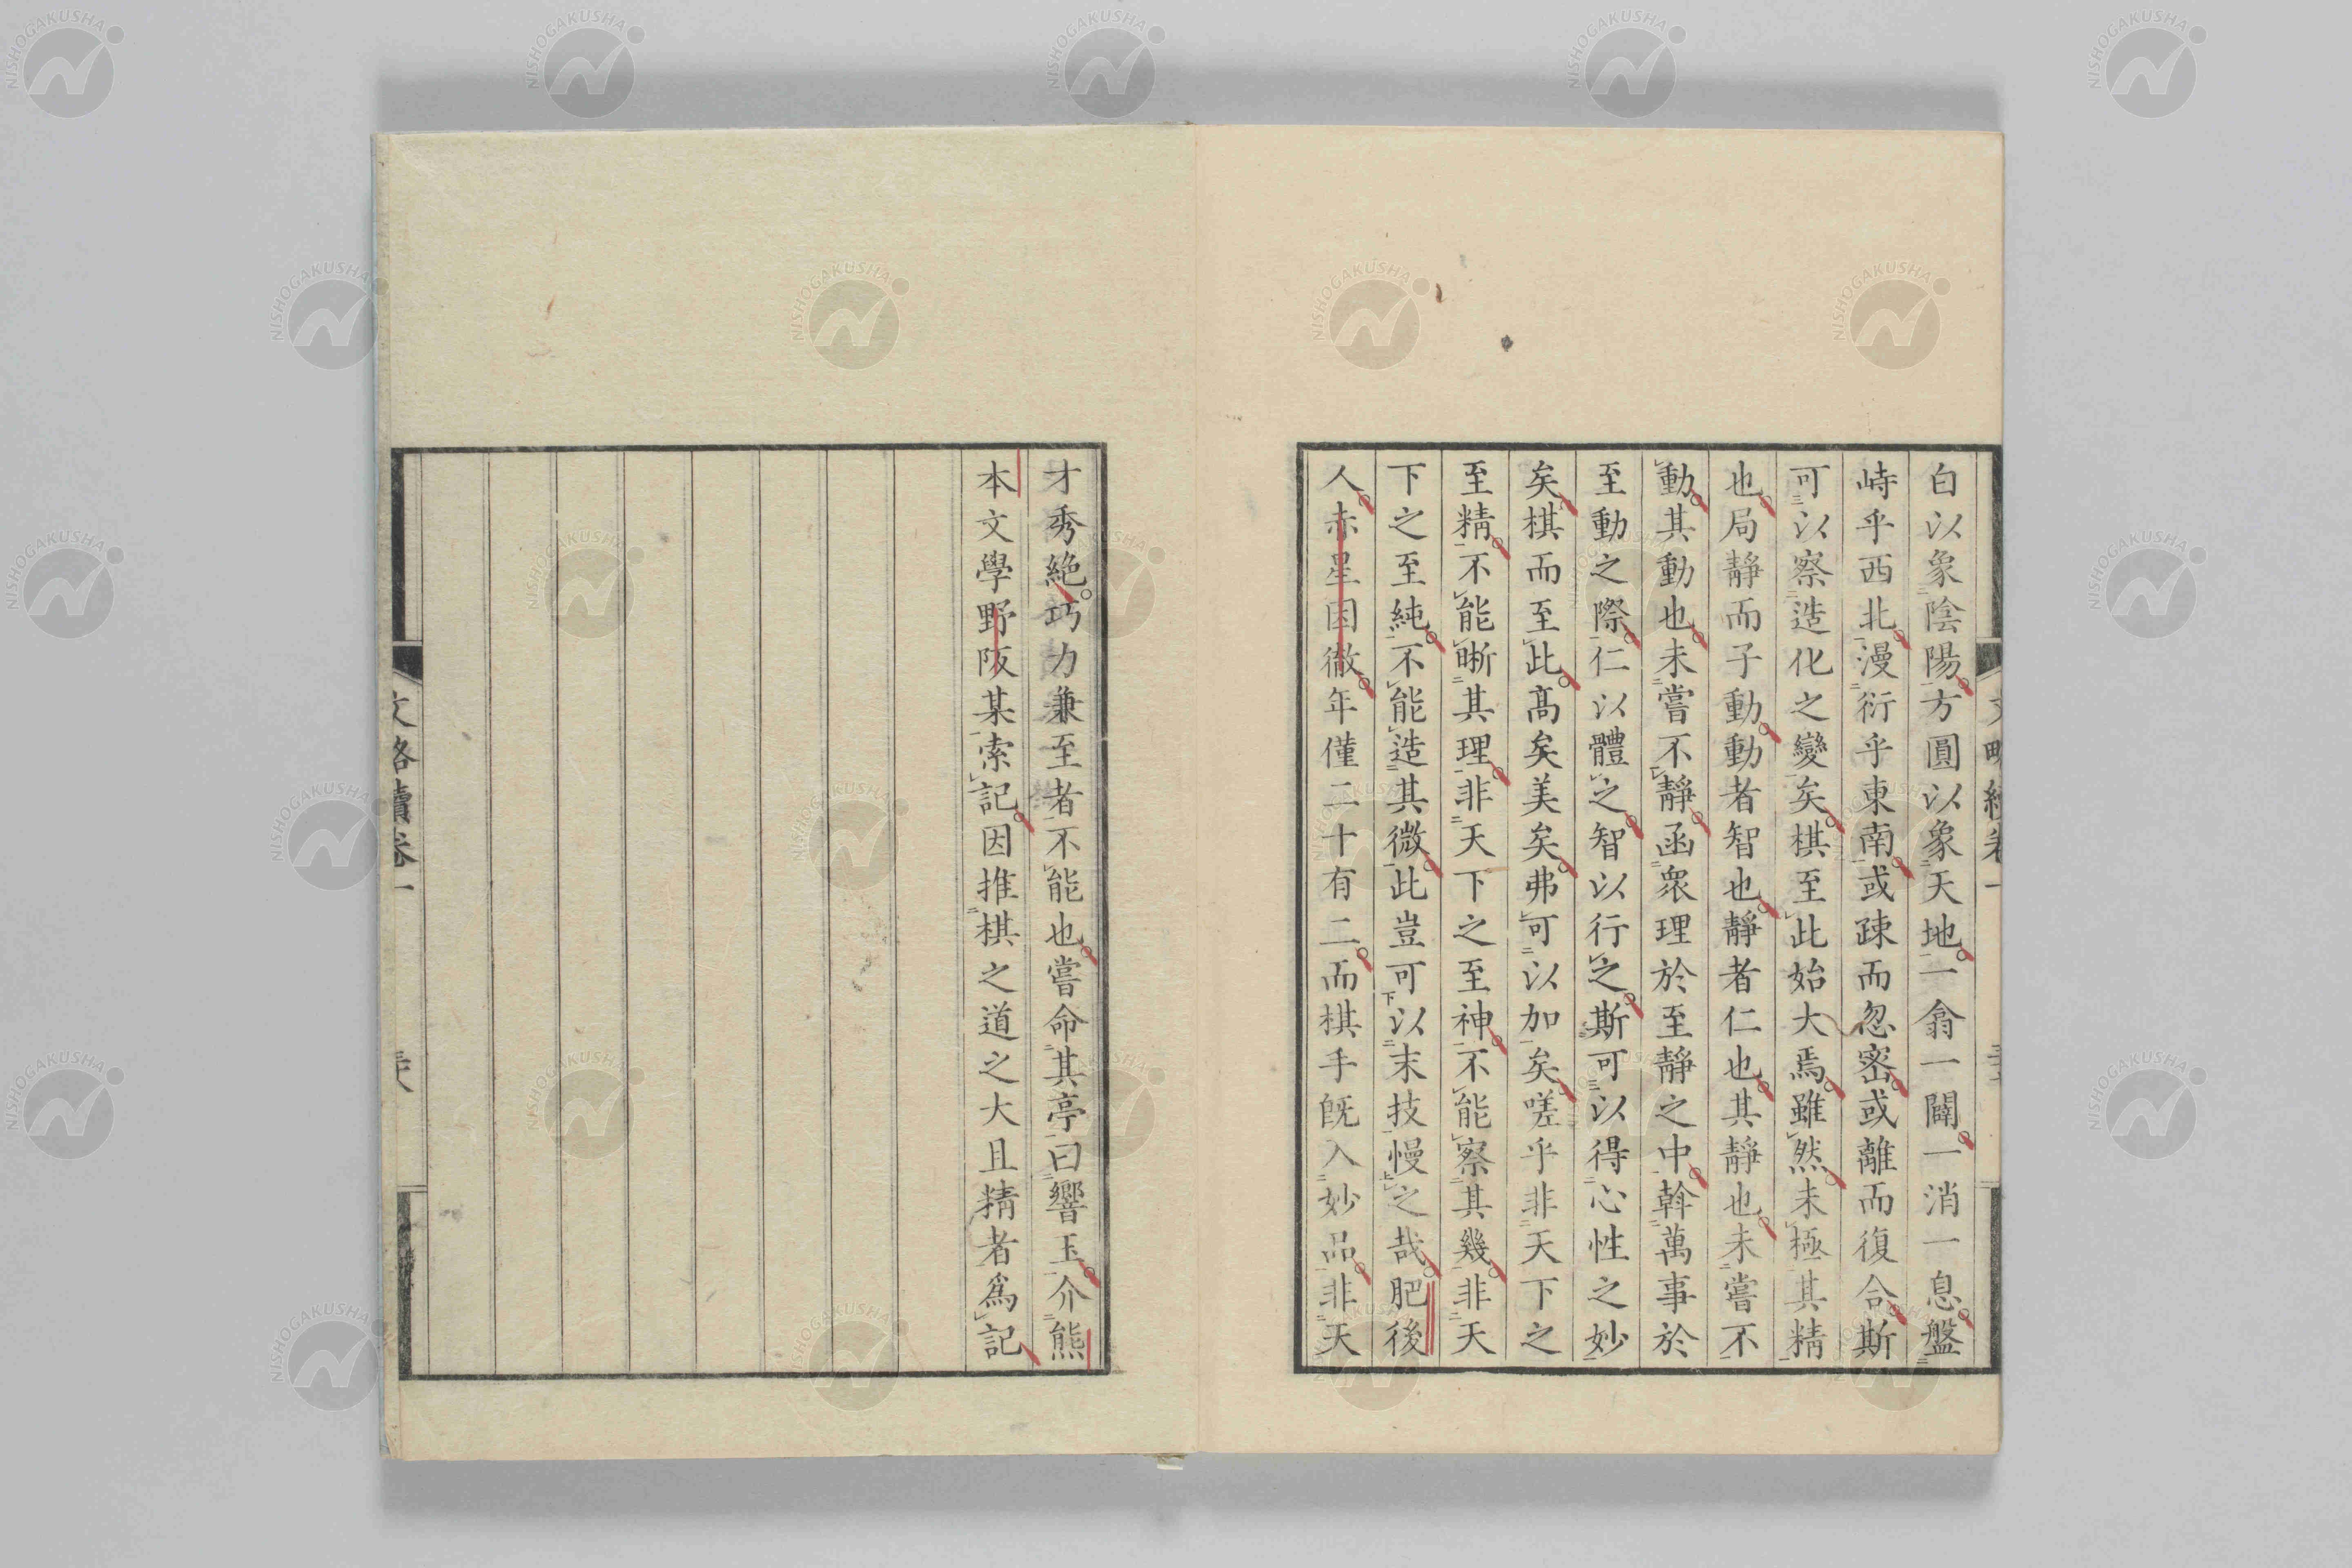 白以象陰陽方圓以象天地一翕一闢一消一息盤
峙乎西北漫衍乎東南或疎而忽密或離而復合斯
可以察造化之變矣棋至此始大焉雖然未極其精
也局靜而子動動者智也靜者仁也其靜也未嘗不
動其動也未嘗不靜函衆理於至靜之中斡萬事於
至動之際仁以體之智以行之斯可以得心性之妙
矣棋而至此高矣美矣弗可以加矣嗟乎非天下之
至精不能晰其理非天下之至神不能察其幾非天
下之至純不能造其微此豈可以末技慢之哉肥後
人赤星因徹年僅二十有二而棋手既入妙品非天
才秀絶巧力兼至者不能也嘗命其亭曰響玉介熊
本文學野阪某索記因推棋之道之大且精者爲記
文略續卷一
NISHOGAKUSHA